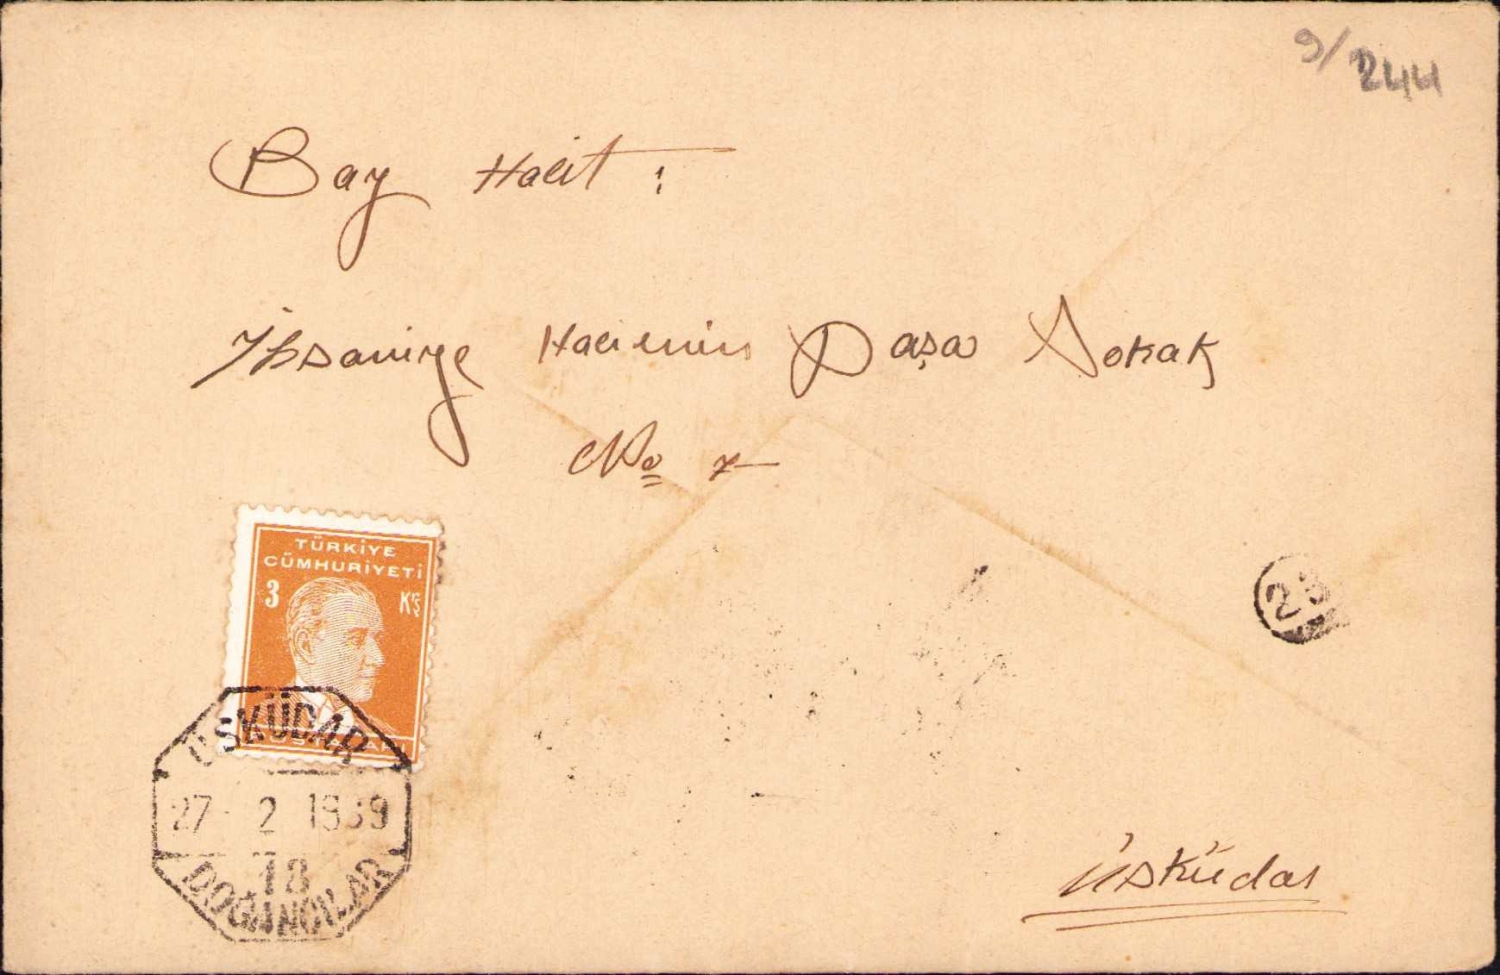 9/244
Bay Halit :
İhsaniye Halimin Paşa Sokak
No 7
TÜRKİYE
CÜMHURİYETİ
3 Krş
ÜSKÜDAR
27 - 2 1939
18
DOĞANCILAR
2
Üsküdar